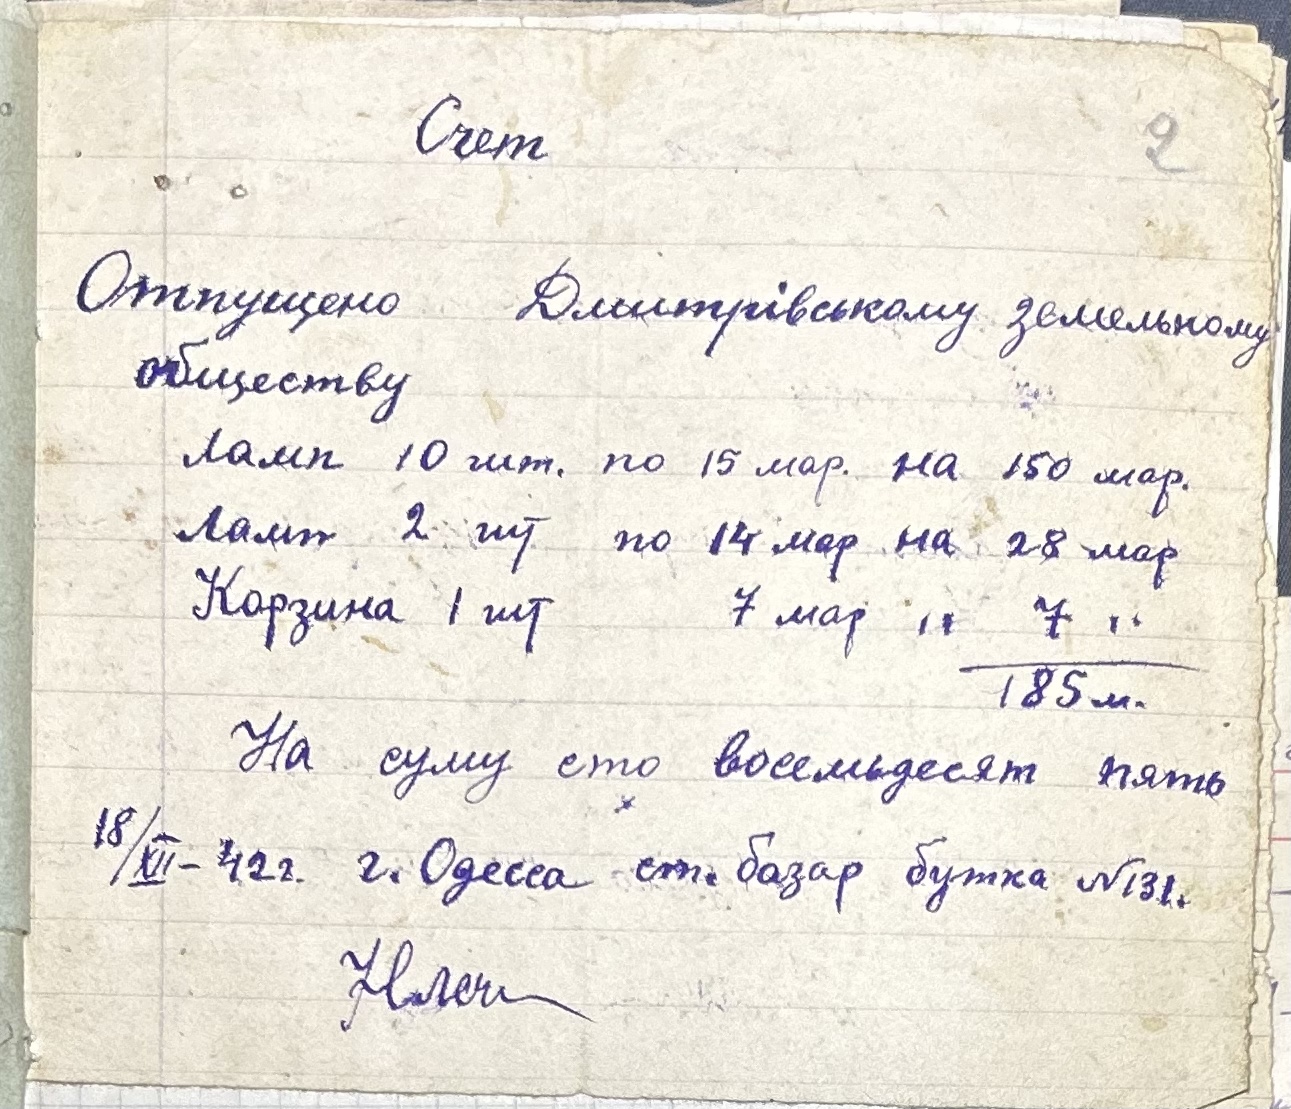 Счет
2
Отпущено Дмитрівському земельному
обществу
Ламп 10 шт. по 15 мар. на 150 мар.
Ламп 2 шт по 14 мар на 28 мар
Корзина 1 шт 7 мар " 7 "
185 м.
На суму сто восемьдесят пять
18/XII-42 г. г. Одесса ст. базар бутка №131.